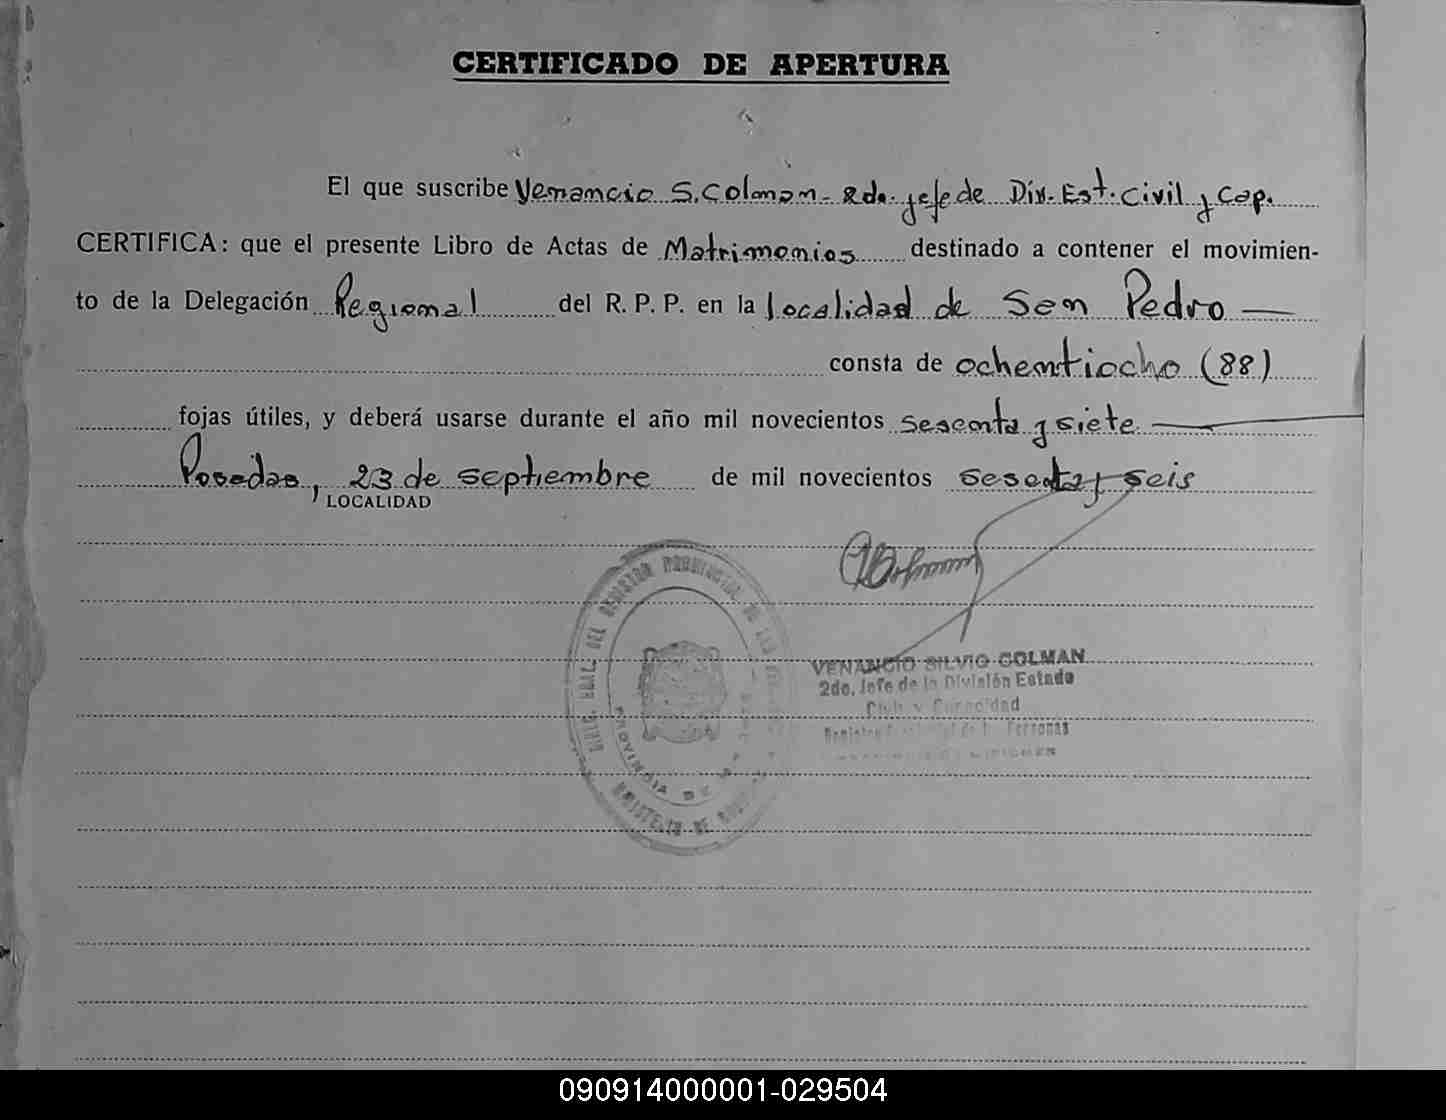 CERTIFICADO DE APERTURA
El que suscribe Venancio S. Colman - 2do. jefe de Div. Est. Civil y Cap.
CERTIFICA: que el presente Libro de Actas de Matrimonios destinado a contener el movimien-
to de la Delegación Regional del R. P. P. en la localidad de San Pedro —
consta de ochentiocho (88)
fojas útiles, y deberá usarse durante el año mil novecientos sesenta y siete —
Posadas, 23 de septiembre de mil novecientos sesenta y seis
LOCALIDAD
VENANCIO SILVIO COLMAN
2do. Jefe de la División Estado
Civil y Capacidad
Personas
PROVINCIA DE
090914000001-029504